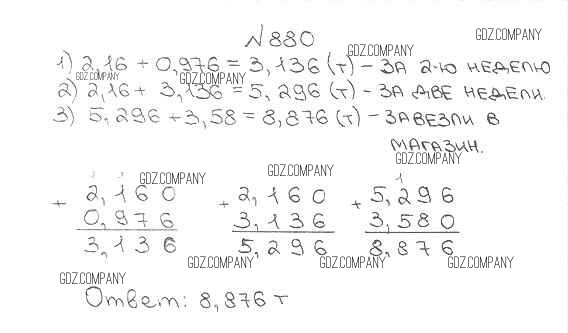 №880
GDZ.COMPANY
GDZ.COMPANY
1) 2,16 + 0,976 = 3,136 (т) - ЗА 2-Ю НЕДЕЛЮ
GDZ.COMPANY GDZ.COMPANY
2) 2,16 + 3,136 = 5,296 (т) - ЗА ДВЕ НЕДЕЛИ.
3) 5,296 + 3,58 = 8,876 (т) - ЗАВЕЗЛИ В
МАГАЗИН.
GDZ.COMPANY
GDZ.COMPANY GDZ.COMPANY
1 1 1
+ 2,160 + 2,160 + 5,296
0,976 3,136 3,580
3,136 5,296 8,876
GDZ.COMPANY GDZ.COMPANY GDZ.COMPANY
GDZ.COMPANY
Ответ: 8,876 т